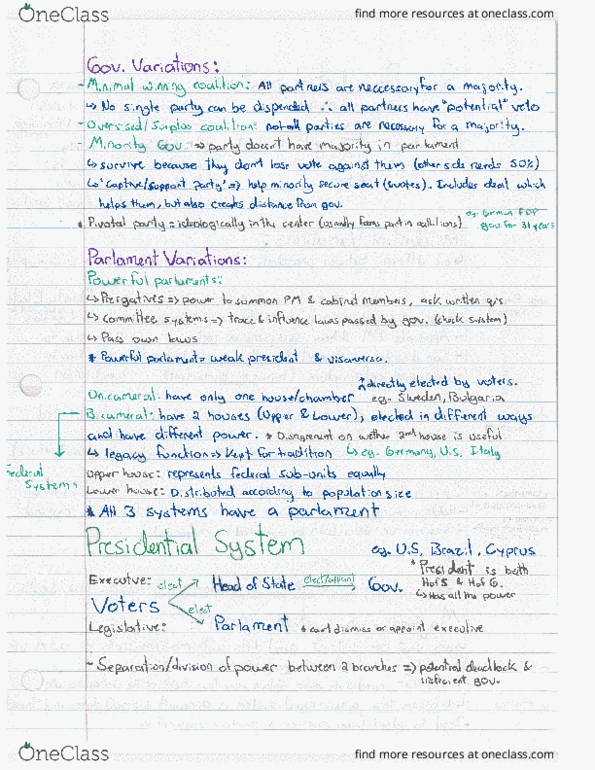 OneClass
find more resources at oneclass.com
Gov. Variations:
- Minimal winning coalition: All partners are neccessary for a majority.
↳ No single party can be dispended ∴ all partners have "potential" veto
- Oversized/Surplus coalition: not all parties are necessary for a majority.
- Minority Gov. ⇒ party doesn't have majority in parlament
↳ survive because they don't lose vote against them (other side needs 50%)
↳ 'Captive/support Party' ⇒ help minority secure seat (quotes). Includes deal which
helps them, but also creates distance from gov.
* Pivotal party = ideologically in the center (usually forms part in collitions)
eg. German FDP
gov. for 31 years
Parlament Variations:
Powerful parlments:
↳ Perogatives ⇒ power to summon PM & cabind members, ask written q's.
↳ Committee systems ⇒ trace & influence laws passed by gov. (check system)
↳ Pass own laws
* Powerful parlament = weak president & visaversa.
directly elected by voters.
Unicameral: have only one house/chamber eg. Sweden, Bulgaria
Bicameral: have 2 houses (Upper & Lower), elected in different ways
and have different power. * Disagrement on wether 2nd house is useful
↳ legacy function ⇒ Kept for tradition ↳ eg. Germany, U.S, Italy
Federal
Systems
Upper house: represents federal sub-units equally
Lower house: Distributed according to population size
* All 3 systems have a parlament
Presidential System
eg. U.S, Brazil, Cyprus
* President is both
HofS & HofG.
↳ Has all the power
Executive: elect Head of State elect/appoint Gov.
Voters
elect
Legislative: Parlament * can't dismiss or appoint executive
- Separation/division of power between 2 branches ⇒ potential deadlock &
inefficient gov.
OneClass
find more resources at oneclass.com